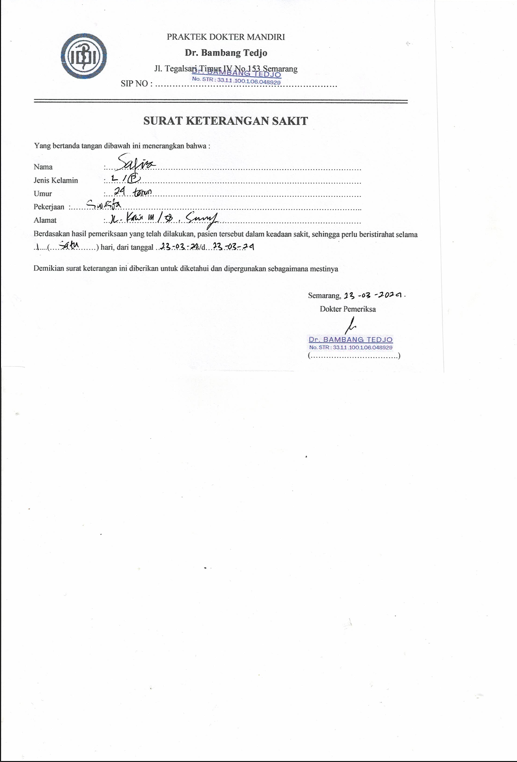 PRAKTEK DOKTER MANDIRI
Dr. Bambang Tedjo
Jl. Tegalsari Timur IV No.153 Semarang
Dr. BAMBANG TEDJO
No. STR : 33.1.1.100.1.06.048929
SIP NO : ...............................................................
SURAT KETERANGAN SAKIT
Yang bertanda tangan dibawah ini menerangkan bahwa :
Nama : Safira
Jenis Kelamin : L / P
Umur : 24 tahun
Pekerjaan : Swasta
Alamat :
Berdasakan hasil pemeriksaan yang telah dilakukan, pasien tersebut dalam keadaan sakit, sehingga perlu beristirahat selama
1 (Satu) hari, dari tanggal 23-03-24 s/d 23-03-24
Demikian surat keterangan ini diberikan untuk diketahui dan dipergunakan sebagaimana mestinya
Semarang, 23-03-2024.
Dokter Pemeriksa
Dr. BAMBANG TEDJO
No. STR : 33.1.1.100.1.06.048929
(.................................)